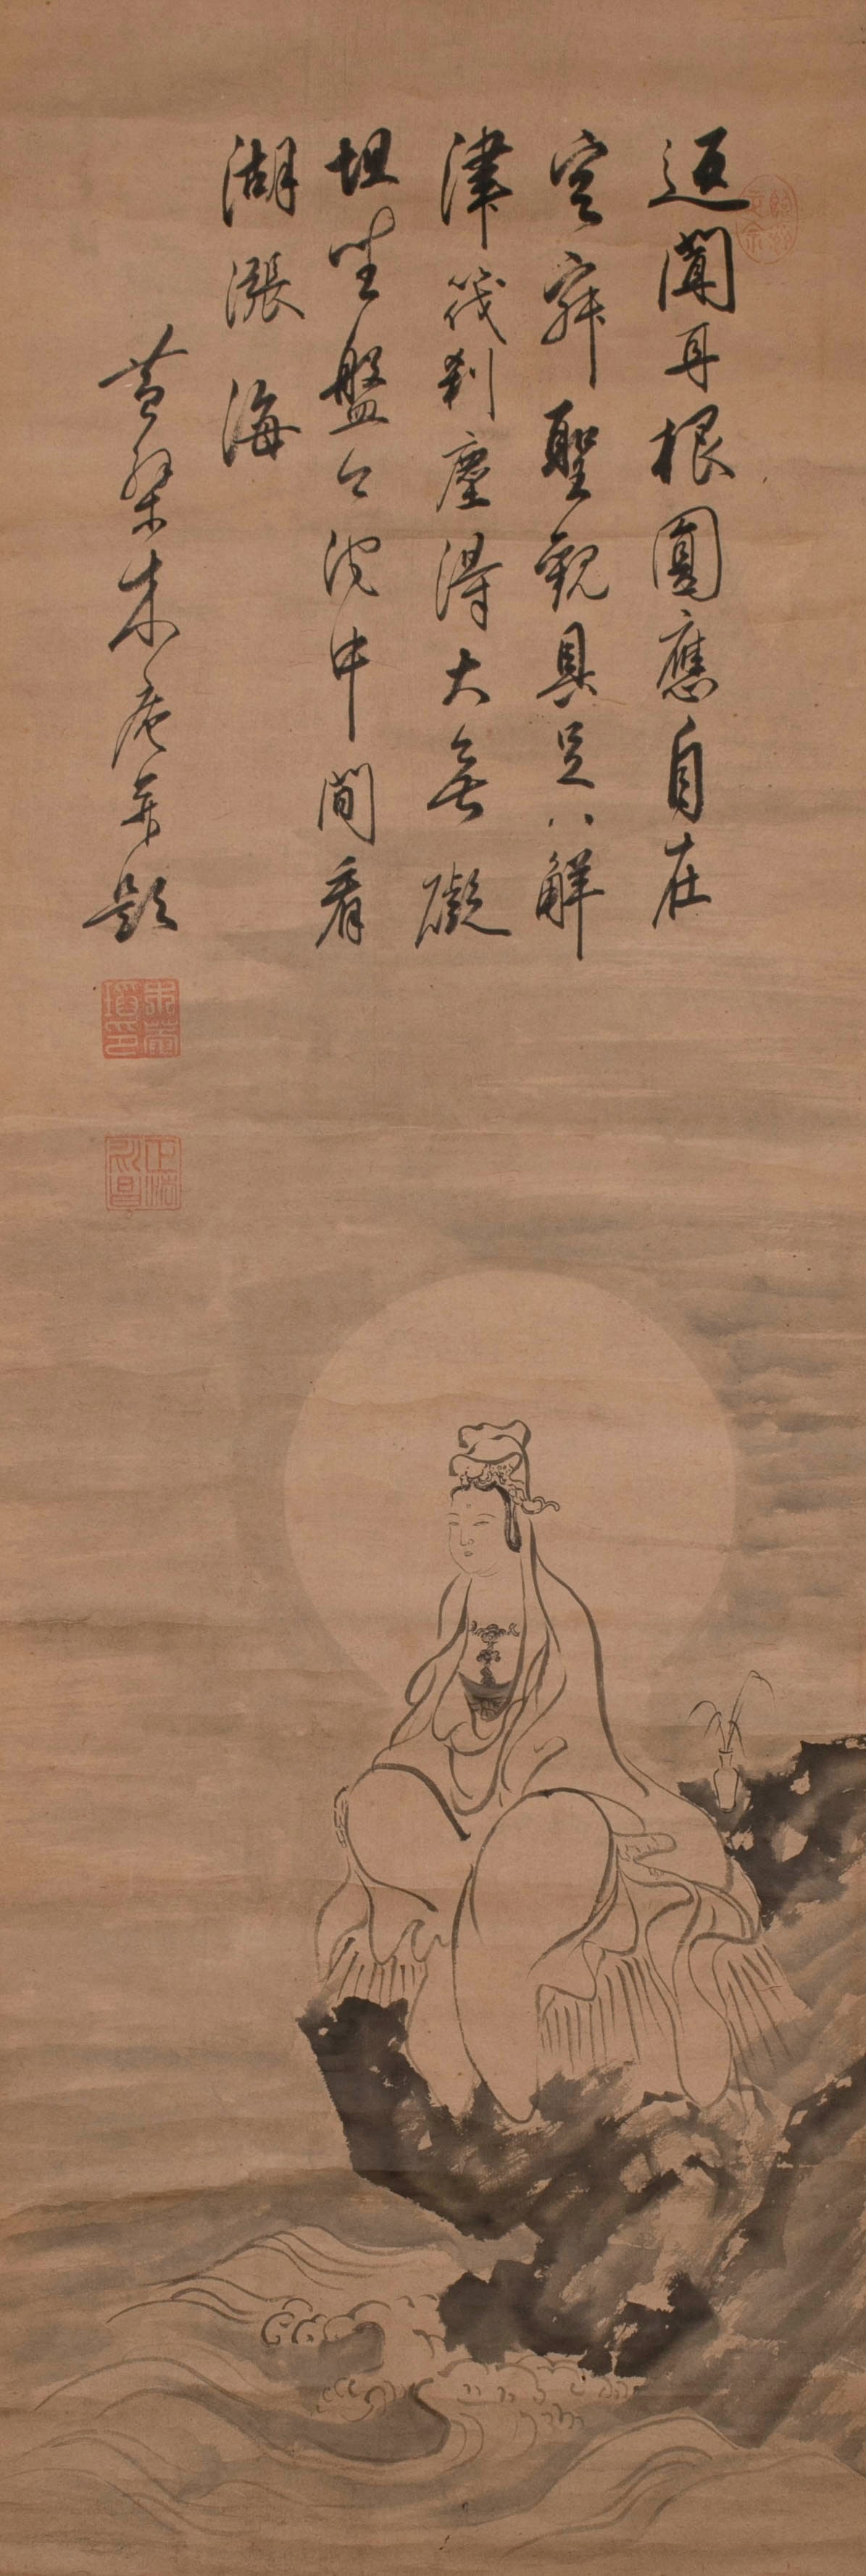 返聞耳根圓應自在
空聖觀具足八解
津筏刹塵得大無礙
坦坐盤沱中閒看
湖漲海
黄檗木庵題
木菴瑫印